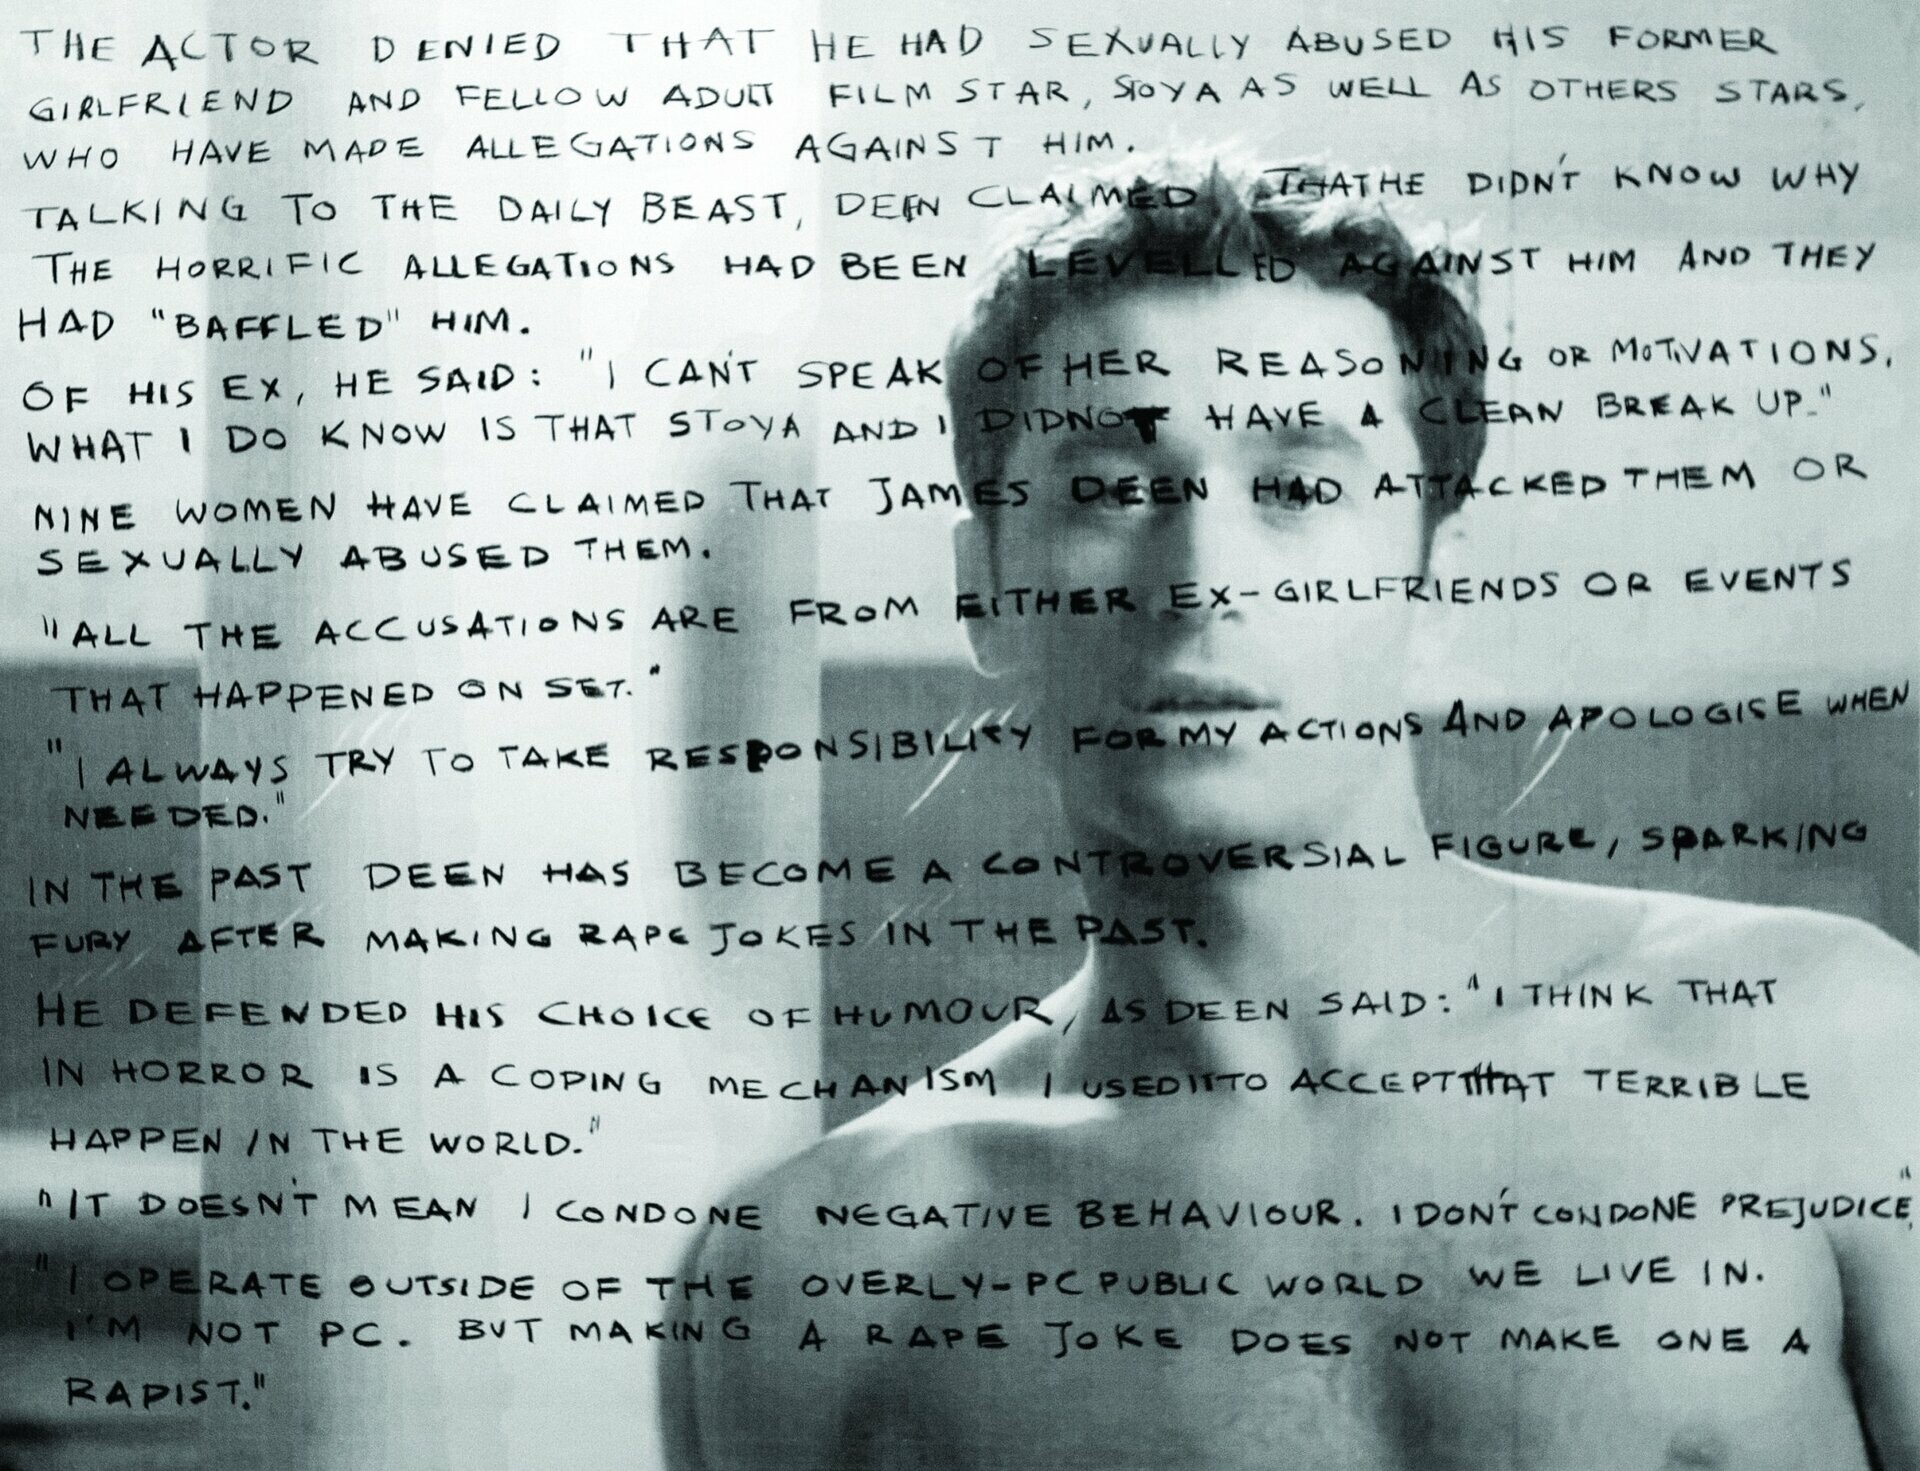 THE ACTOR DENIED THAT HE HAD SEXUALLY ABUSED HIS FORMER
GIRLFRIEND AND FELLOW ADULT FILM STAR, STOYA AS WELL AS OTHERS STARS,
WHO HAVE MADE ALLEGATIONS AGAINST HIM.
TALKING TO THE DAILY BEAST, DEEN CLAIMED THAT HE DIDN'T KNOW WHY
THE HORRIFIC ALLEGATIONS HAD BEEN LEVELLED AGAINST HIM AND THEY
HAD "BAFFLED" HIM.
OF HIS EX, HE SAID: "I CAN'T SPEAK OF HER REASONING OR MOTIVATIONS.
WHAT I DO KNOW IS THAT STOYA AND I DIDNOT HAVE A CLEAN BREAK UP."
NINE WOMEN HAVE CLAIMED THAT JAMES DEEN HAD ATTACKED THEM OR
SEXUALLY ABUSED THEM.
"ALL THE ACCUSATIONS ARE FROM EITHER EX-GIRLFRIENDS OR EVENTS
THAT HAPPENED ON SET."
"I ALWAYS TRY TO TAKE RESPONSIBILITY FOR MY ACTIONS AND APOLOGISE WHEN
NEEDED."
IN THE PAST DEEN HAS BECOME A CONTROVERSIAL FIGURE, SPARKING
FURY AFTER MAKING RAPE JOKES IN THE PAST.
HE DEFENDED HIS CHOICE OF HUMOUR, AS DEEN SAID: "I THINK THAT
IN HORROR IS A COPING MECHANISM I USED IT TO ACCEPT THAT TERRIBLE
HAPPEN IN THE WORLD."
"IT DOESN'T MEAN I CONDONE NEGATIVE BEHAVIOUR. I DON'T CONDONE PREJUDICE,"
"I OPERATE OUTSIDE OF THE OVERLY-PC PUBLIC WORLD WE LIVE IN.
I'M NOT PC. BUT MAKING A RAPE JOKE DOES NOT MAKE ONE A
RAPIST."